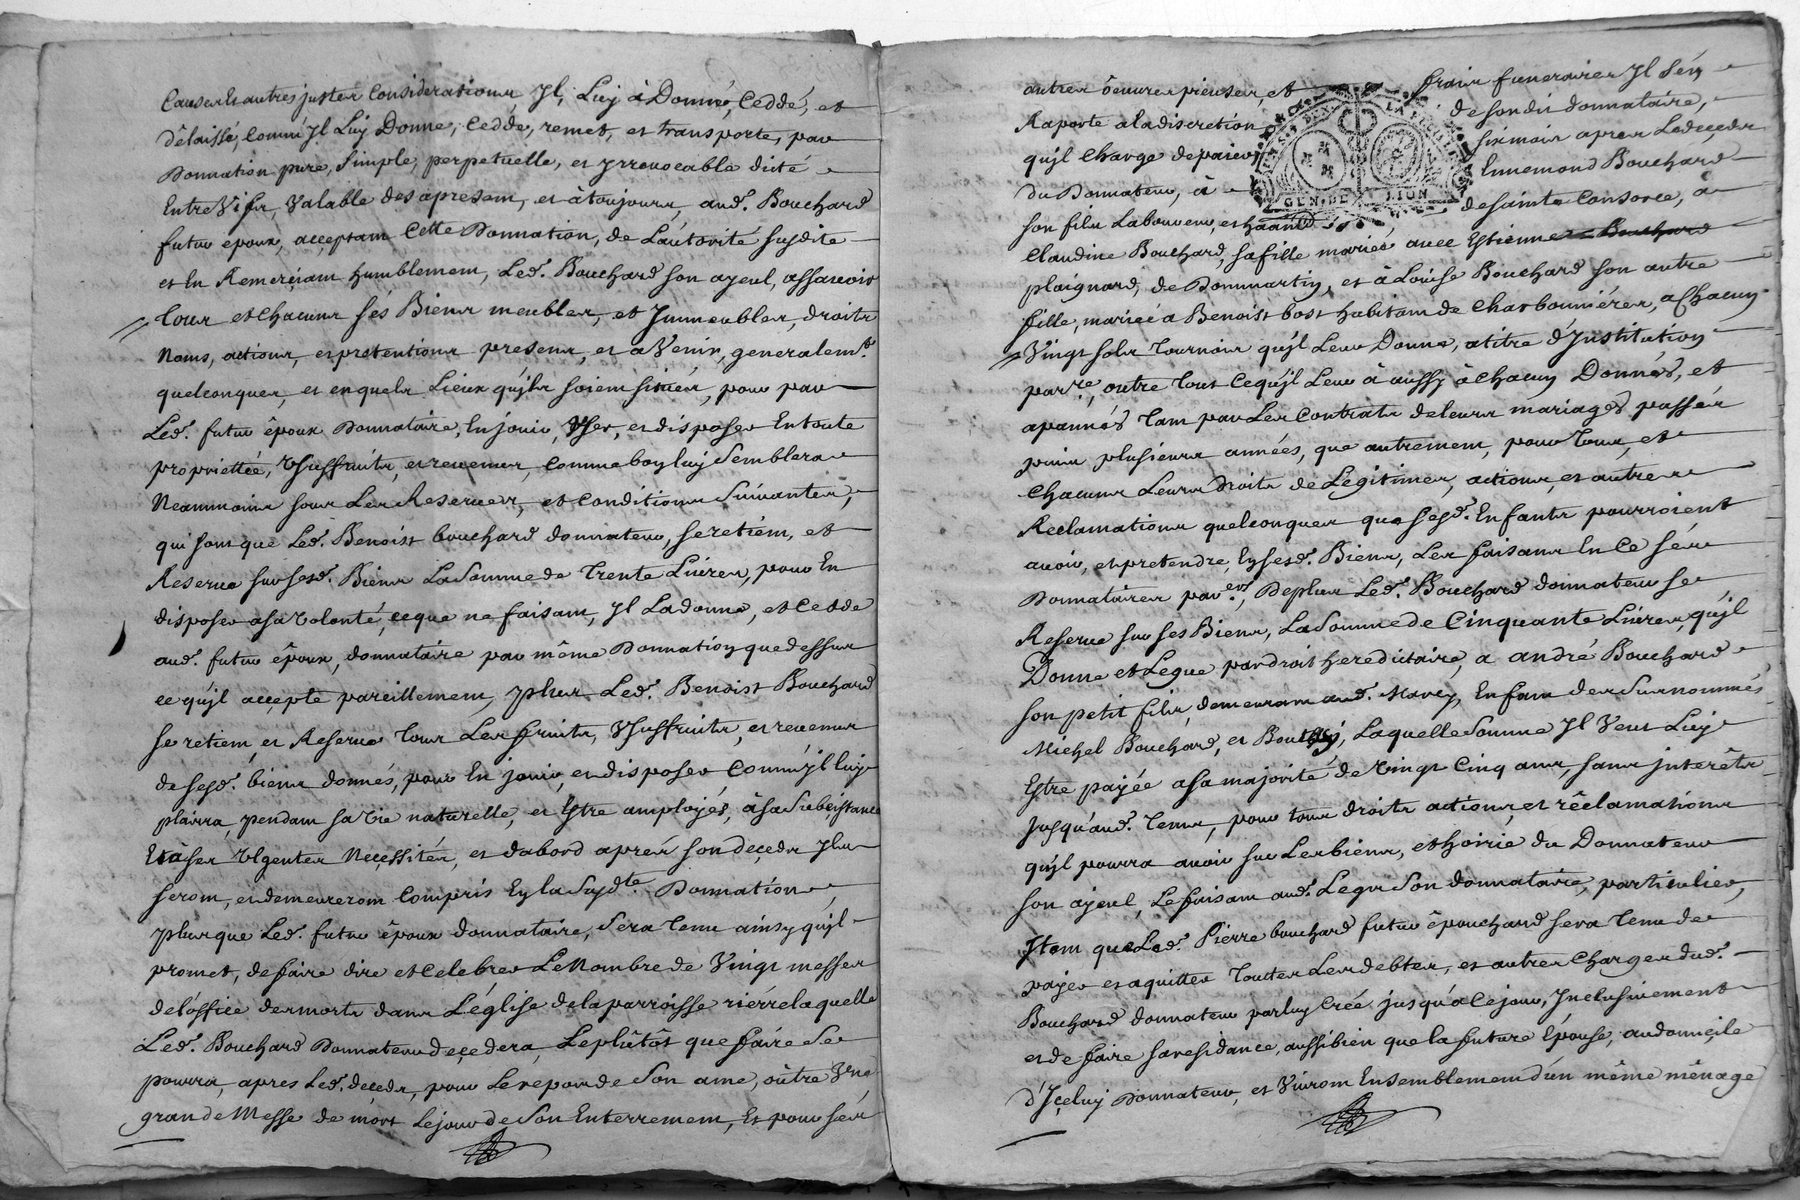 Causes et autres justes Considerations Jl, Luy à Donné, Ceddé, et
Délaissé, Comm'Jl Luy Donne, Cedde, remet, et transporte, par
Donnation pure, simple, perpetuelle, et yrrevocable ditte
Entre Vifs, Valable des apresent, et à toujours, aud. Bouchard
futur époux, acceptant Cette Donnation, de L'autorité susdite
et En Remerciant humblement, Led. Bouchard son ayeul, assavoir
Tous et chacuns sés Biens meubles, et Jmmeubles, droits
Noms, actions, et pretentions presens, et a Venir, generalemt.
quelconques, et en quels Lieux qu'jls soient situés, pour par
Led. futur époux Donnataire, En jouir, User, et disposer En toute
propriettée, Usuffruits, et revenus, comme bon luy Semblera
Neanmoins sous Les Reserves, et Conditions suivantes,
qui sont que Led. Benoist bouchard donnateur, se retient, et
Reserve sur sesd. Biens La Somme de Trente Livres, pour En
disposer a sa volonté, ce que ne faisant, Jl La donne, et Cedde
aud. futur époux, donnataire par même Donnation que dessus
ce qu'jl accepte pareillement, plus Led. Benoist Bouchard
se retient, et Reserve Tous Les fruits, Usuffruits, et revenus
de sesd. biens donnés, pour En jouir, et disposer Comm'jl luy
plairra, pendant sa Vie naturelle, et Estre amployés, à sa Subcistance
Et à ses Urgentes Necessités, et d'abord aprés son deceds Jls
seront, et demeureront Compris En la Susdte. Donnation,
plus que Led. futur époux donnataire, Sera Tenu ainsy qu'jl
promet, de faire dire et Celebrer Le Nombre de Vingt messes
de l'office des morts dans L'église de la parroisse riérre laquelle
Led. Bouchard Donnateur decedera, Le plûtôt que faire Se
pourra, apres Led. deceds, pour Le repos de Son ame, oûtre Vne
grande Messe de mort Le jour de Son Enterrement, Et pour sés
autres oeuvres pieuses, et frais funeraires Jl s'en
Raporte a la discretion de sondit donnataire,
qu'jl Charge de paier, six mois apres Le deceds
Du Donnateur, à Ennemond Bouchard
son fils Laboureur, et haant de Sainte Consorce, à
Claudine Bouchard, sa fille mariée avec Estienne Bouchard
plaignard, de Dommartin, et à Loüise Bouchard son autre
fille, mariée a Benoist bost habitant de Charbonniéres, a Chacun
Vingt sols Tournois qu'jl Leur Donne, a titre d'Jnstitution
parre. outre Tout Ce qu'jl Leur à aussy à Chacun Donnés, et
apannés Tant par Les Contrats de leurs mariages passés
puis plusieurs années, que autrement, pour Tous, et
Chacuns Leurs Droits de Légitimes, actions, et autres
Reclamations quelconques que sesd. Enfants pourroient
avoir, et pretendre, En sesd. Biens, Les faisans En Ce ses
Donnataires parers, De plus Led. Bouchard donnateur se
Reserve sur ses Biens, La Somme de Cinquante Livres, qu'jl
Donne et Legue par droit hereditaire, a andré Bouchard
son petit fils, demeurant aud. Marcy, Enfant des Surnommés
Michel Bouchard, et, Laquelle Somme Jl Veut Luy
Estre payée a sa majorité de Vingt Cinq ans, sans jnterêts
Jusqu'aud. Tems, pour tous droits actions, et réclamations
qu'jl pourra avoir sur Les biens, et hoirie du Donnateur
son ayeul, Le faisant aud. Legs Son donnataire, particulier,
Jtem que Led. Pierre bouchard futur époux sera Tenu de
payer et aquitter Touttes Les debtes, et autres Charges dud.
Bouchard donnateur par luy Créé jusqu'a Ce jour, Jnclusivement
et de faire sa residance, aussi bien que la future Epouse, au domicile
d'Jceluy Donnateur, et Vivront Ensemblement d'un même ménage
GEN. DE LION